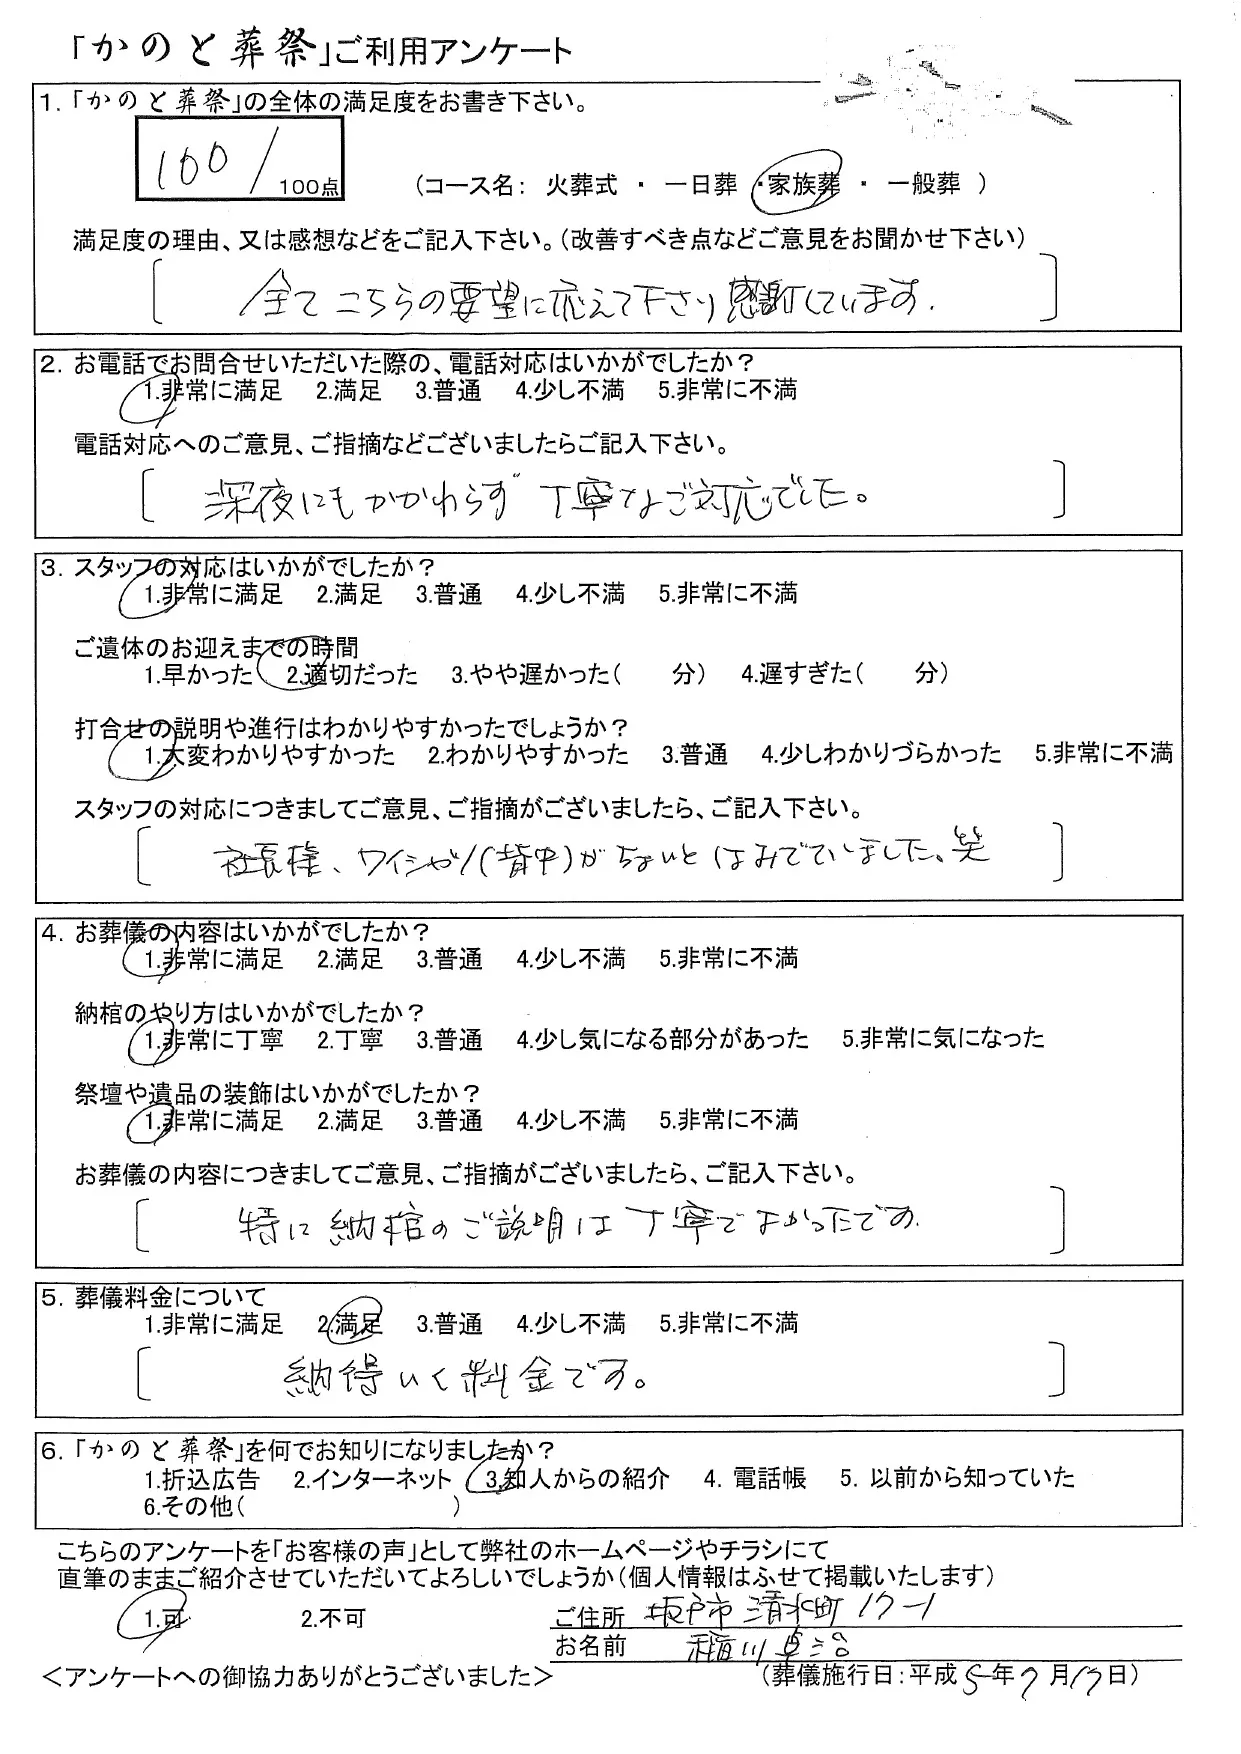 「かのと葬祭」ご利用アンケート
1. 「かのと葬祭」の全体の満足度をお書き下さい。
100/100点 (コース名: 火葬式 ・ 一日葬 ・家族葬 ・ 一般葬 )
満足度の理由、又は感想などをご記入下さい。(改善すべき点などご意見をお聞かせ下さい)
全てこちらの要望に応えて下さり感謝しています.
2. お電話でお問合せいただいた際の、電話対応はいかがでしたか?
1.非常に満足 2.満足 3.普通 4.少し不満 5.非常に不満
電話対応へのご意見、ご指摘などございましたらご記入下さい。
深夜にもかかわらず丁寧なご対応でした。
3. スタッフの対応はいかがでしたか?
1.非常に満足 2.満足 3.普通 4.少し不満 5.非常に不満
ご遺体のお迎えまでの時間
1.早かった 2.適切だった 3.やや遅かった( 分) 4.遅すぎた( 分)
打合せの説明や進行はわかりやすかったでしょうか?
1.大変わかりやすかった 2.わかりやすかった 3.普通 4.少しわかりづらかった 5.非常に不満
スタッフの対応につきましてご意見、ご指摘がございましたら、ご記入下さい。
社長様、ワイシャツ(背中)がちょいとはみでていました。笑
4. お葬儀の内容はいかがでしたか?
1.非常に満足 2.満足 3.普通 4.少し不満 5.非常に不満
納棺のやり方はいかがでしたか?
1.非常に丁寧 2.丁寧 3.普通 4.少し気になる部分があった 5.非常に気になった
祭壇や遺品の装飾はいかがでしたか?
1.非常に満足 2.満足 3.普通 4.少し不満 5.非常に不満
お葬儀の内容につきましてご意見、ご指摘がございましたら、ご記入下さい。
特に納棺のご説明は丁寧でよかったです.
5. 葬儀料金について
1.非常に満足 2.満足 3.普通 4.少し不満 5.非常に不満
納得いく料金です。
6. 「かのと葬祭」を何でお知りになりましたか?
1.折込広告 2.インターネット 3.知人からの紹介 4. 電話帳 5. 以前から知っていた
6.その他( )
こちらのアンケートを「お客様の声」として弊社のホームページやチラシにて
直筆のままご紹介させていただいてよろしいでしょうか(個人情報はふせて掲載いたします)
1.可 2.不可 ご住所 坂戸市清水町17-1
お名前 稲川卓治
<アンケートへの御協力ありがとうございました> (葬儀施行日:平成5年7月17日)